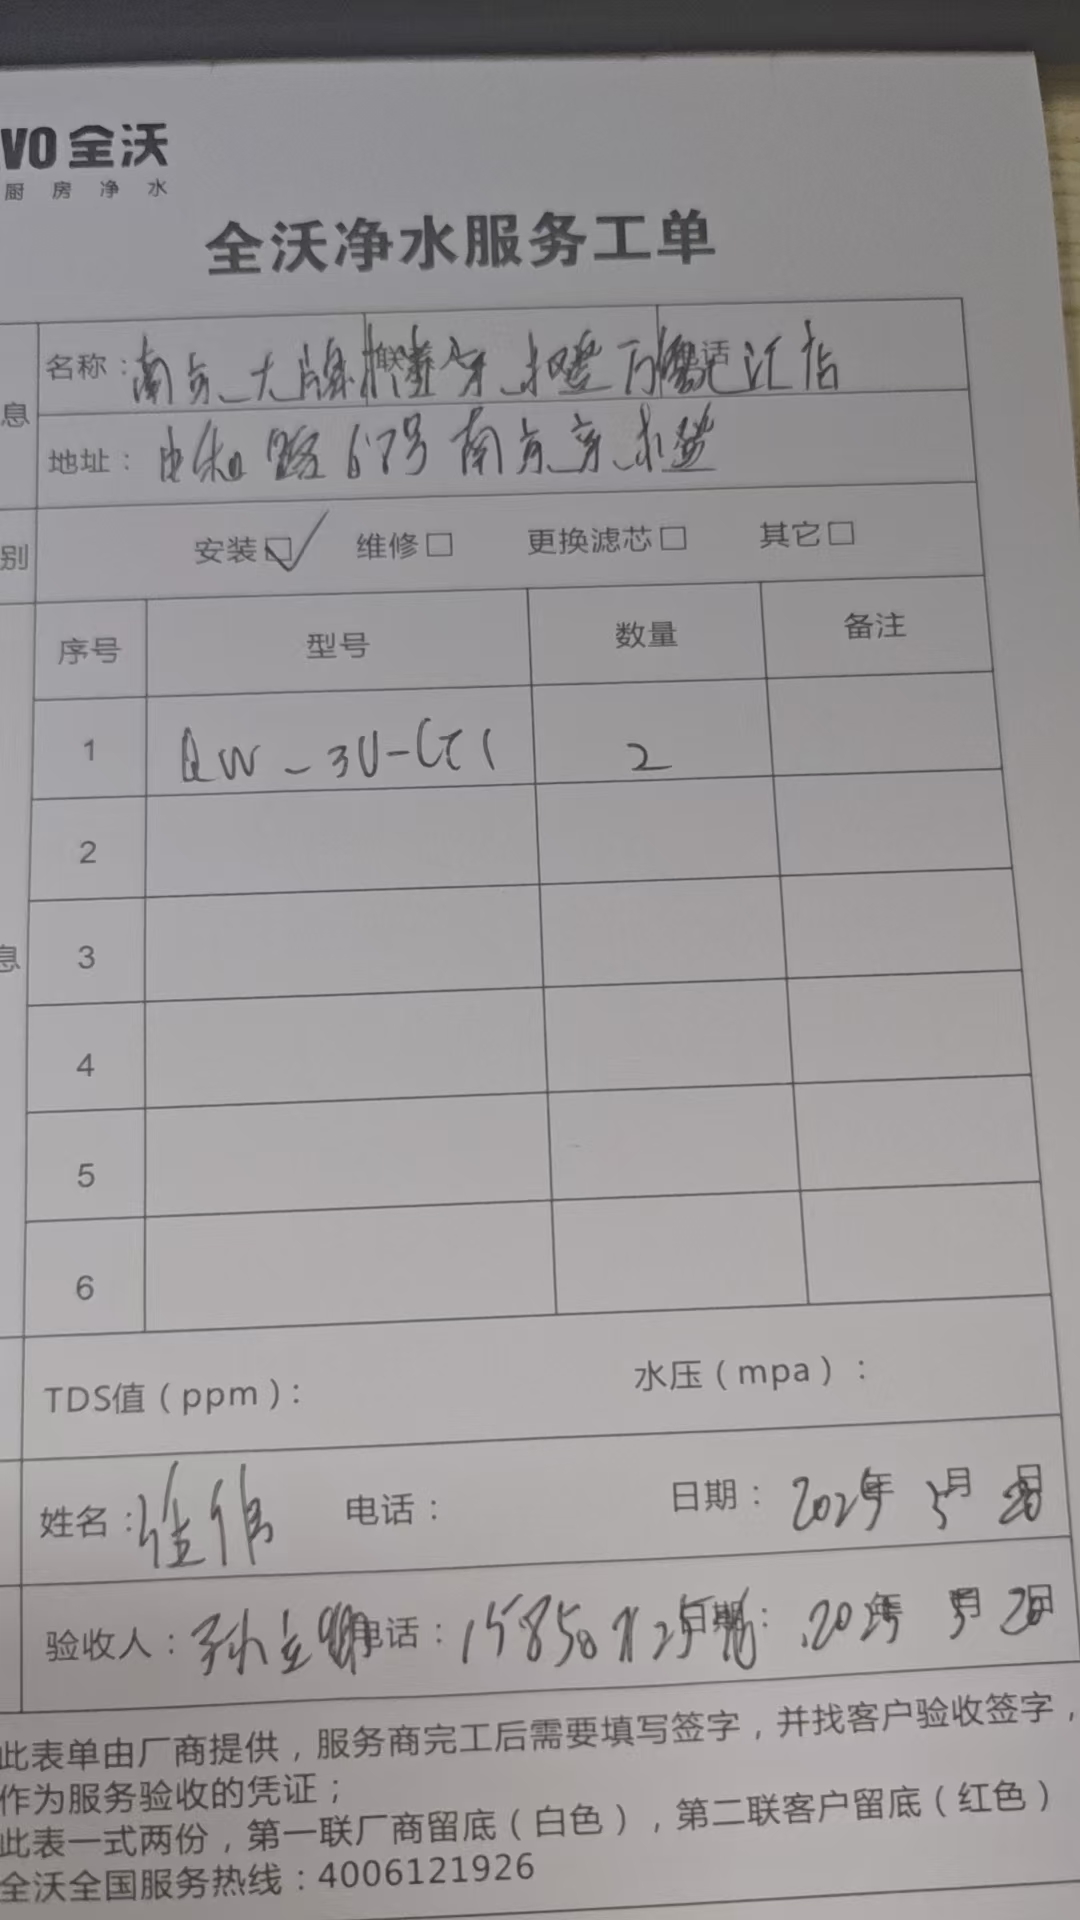 VO 全沃
厨房净水
全沃净水服务工单
息
名称：南京大牌档 联系人 电话 汇店
地址：中和路67号南京
别
安装☑ 维修□ 更换滤芯□ 其它□
序号 型号 数量 备注
1 QW-3U-CT1 2
2
息 3
4
5
6
TDS值（ppm）： 水压（mpa）：
姓名： 伟 电话： 日期：2025年5月28日
验收人：孙立明 电话：15850 日期：2025年5月28日
此表单由厂商提供，服务商完工后需要填写签字，并找客户验收签字，
作为服务验收的凭证；
此表一式两份，第一联厂商留底（白色），第二联客户留底（红色）
全沃全国服务热线：4006121926